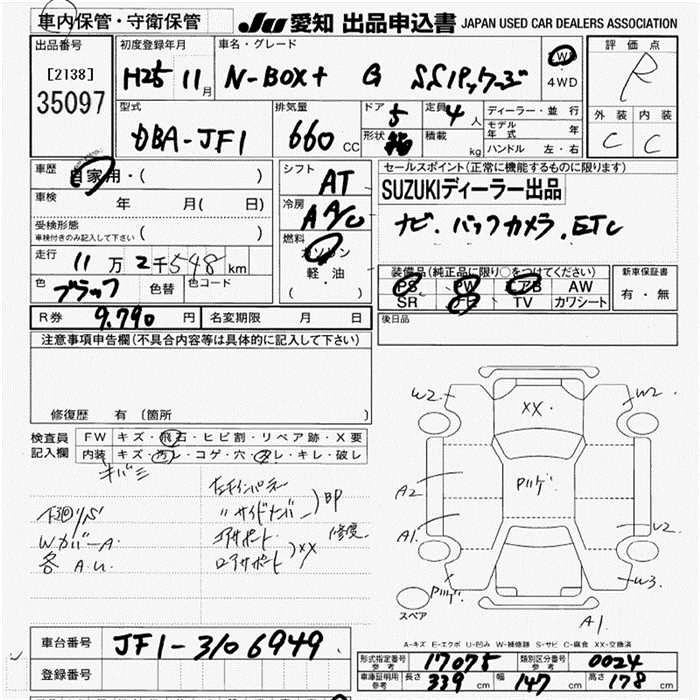 車内保管・守衛保管 JU 愛知 出品申込書 JAPAN USED CAR DEALERS ASSOCIATION
出品番号 初度登録年月 車名・グレード 評価点
[2138] H25 11月 N-BOX+ G SSパッケージ 2WD 4WD R
35097
型式 排気量 ドア 5 定員 4人 ディーラー・並行 外装 内装
DBA-JF1 660 CC 形状 積載 kg モデル年式 年 C C
ハンドル 左・右
車歴 自家用・( ) シフト AT セールスポイント(正常に機能するものに限ります)
車検 年 月( 日) 冷房 A A/C SUZUKIディーラー出品
受検形態 車検付きのみ記入して下さい ( ) 燃料 ガソリン 軽・油 ( ) ナビ.バックカメラ.ETC
走行 11万2千548km 装備品(純正品に限り○をつけてください) 新車保証書
色 ブラック 色替 色コード PS PW エアB AW 有・無
SR TV カワシート
R券 9,790円 名変期限 月 日 後日品
注意事項申告欄(不具合内容等は具体的に記入して下さい)
修復歴 有 (箇所
検査員記入欄 FW キズ・飛石・ヒビ割・リペア跡・X要
内装 キズ・汚レ・コゲ・穴・スレ・キレ・破レ
キバミ
左インパネ
〃サイドメンバー )即
下廻りS コアサポート 修復
WカバーA ロアサポート )XX
各 A.U
W2 XX W2
A2 Pツゲ
A1 U2
Pツゲ W3
スペア A1
A-キズ E-エクボ U-凹み W-補修跡 S-サビ C-腐食 XX-交換済
車台番号 JF1-3106949
登録番号
形式指定番号 参考 17075 類別区分番号 参考 0024
車庫証明用 参考 長さ 339 cm 幅 147 cm 高さ 178 cm